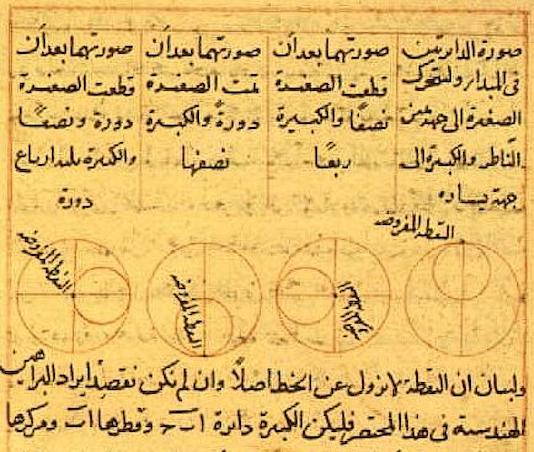 صورة الدايرتين
فى المبدا ولتتحرك
الصغيرة الى جهة يمين
الناظر والكبيرة الى
جهة يساره
صورتهما بعد ان
قطعت الصغيرة
نصفًا والكبيرة
ربعًا
صورتهما بعد ان
تمت الصغيرة
دورةً والكبيرة
نصفها
صورتهما بعد ان
قطعت الصغيرة
دورة ونصفًا
والكبيرة ثلثة ارباع
دورة
النقطة المفروضه
النقطة المفروضه
النقطة المفروضه
النقطة المفروضه
ولبيان ان النقطة لا تزول عن الخط اصلًا وان لم نكن نقصد ايراد البراهين
الهندسية فى هذا المختصر فليكن الكبيرة دائرة ا ب ج وقطرها ا ب ومركزها